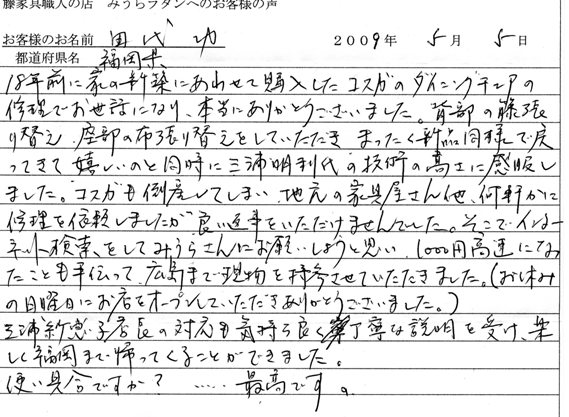 籐家具職人の店 みうらラタンへのお客様の声
お客様のお名前 田代 功 2009年 5月 5日
都道府県名 福岡県
18年前に家の新築にあわせて購入したコスガのダイニングチェアの
修理でお世話になり、本当にありがとうございました。背部の籐張
り替え、座部の布張り替えをしていただき まったく新品同様で戻
ってきて嬉しいのと同時に三浦明利代の技術の高さに感服し
ました。コスガも倒産してしまい 地元の家具屋さん他、何軒かに
修理を依頼しましたが良い返事をいただけませんでした。そこでインター
ネット検索をしてみうらさんにお願いしようと思い、1000円高速にな
ったことも手伝って、広島まで現物を持参させていただきました。(お休み
の日曜日にお店をオープンしていただきありがとうございました。)
三浦紗恵子店長の対応も気持ち良く丁寧な説明を受け、楽
しく福岡まで帰ってくることができました。
使い具合ですか? ‥‥‥ 最高です。